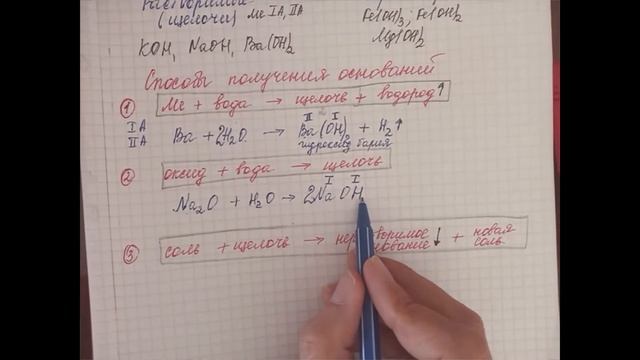 (щелочи) Me IA, IIA
Fe(OH)3; Fe(OH)2
KOH, NaOH, Ba(OH)2
Mg(OH)2
Способы получения оснований
① Me + вода → щелочь + водород↑
IA
IIA
II I
Ba + 2H2O → Ba(OH)2 + H2↑
гидроксид бария
② оксид + вода → щелочь
I I
Na2O + H2O → 2NaOH
③ соль + щелочь → ↓ + новая соль